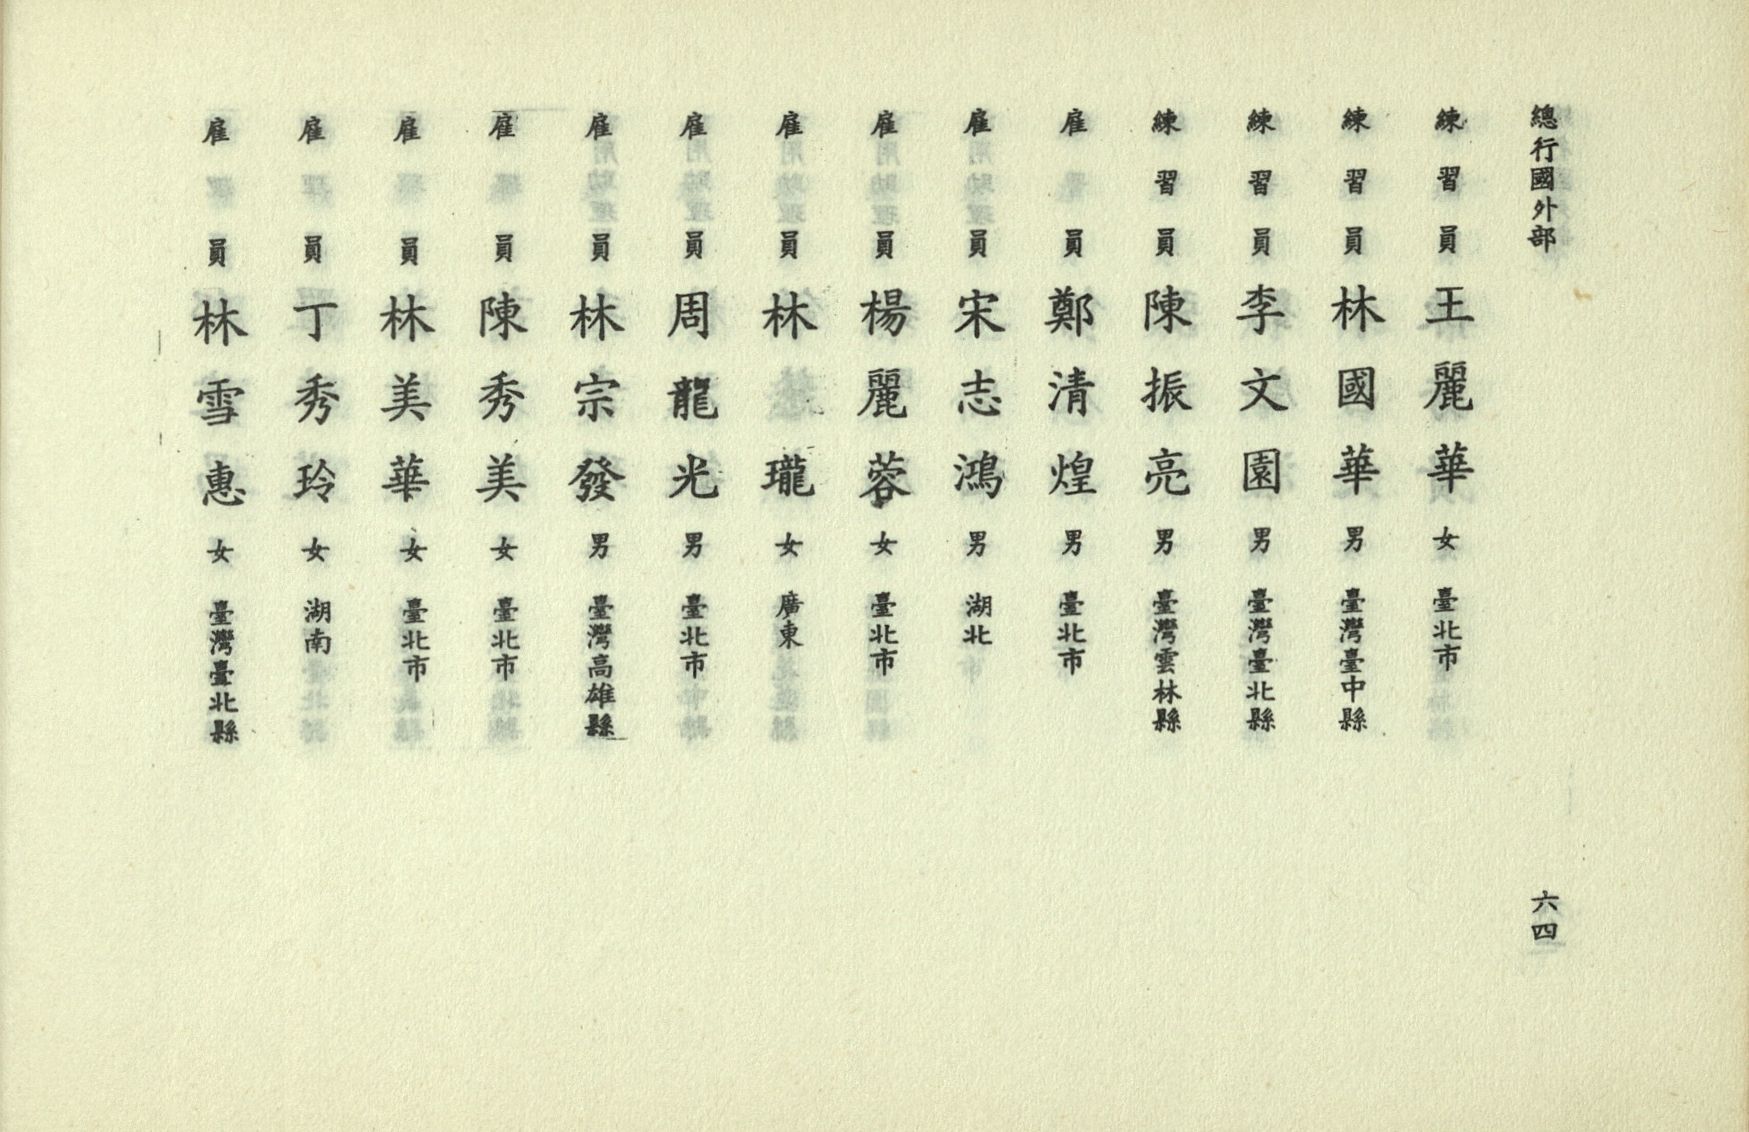 總行國外部
六四
練習員 王麗華 女 臺北市
練習員 林國華 男 臺灣臺中縣
練習員 李文園 男 臺灣臺北縣
練習員 陳振亮 男 臺灣雲林縣
雇員 鄭清煌 男 臺北市
雇員 宋志鴻 男 湖北
雇員 楊麗蓉 女 臺北市
雇員 林瓏 女 廣東
雇員 周龍光 男 臺北市
雇員 林宗發 男 臺灣高雄縣
雇員 陳秀美 女 臺北市
雇員 林美華 女 臺北市
雇員 丁秀玲 女 湖南
雇員 林雪惠 女 臺灣臺北縣